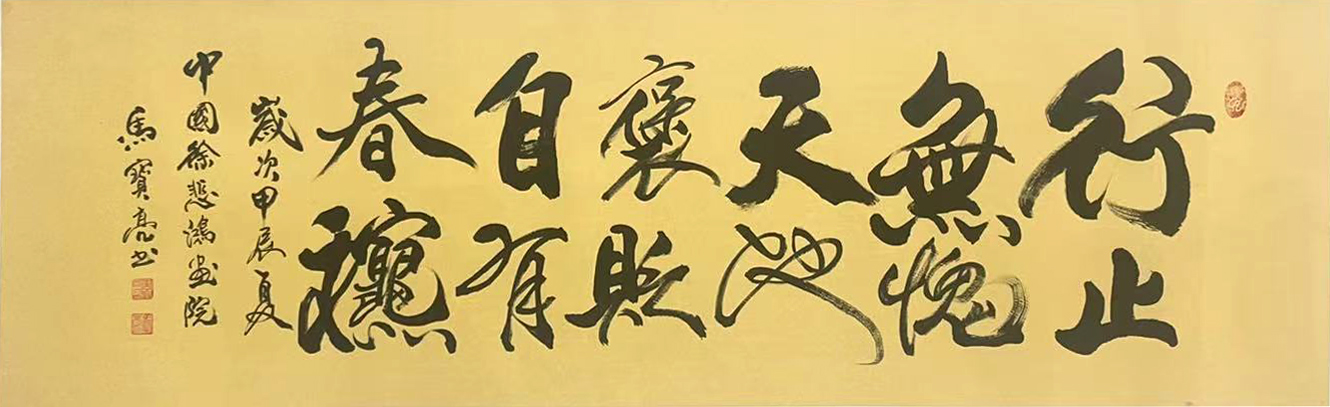 行止
無愧
天地
褒貶
自有
春穐
歲次甲辰夏
中國徐悲鴻畫院
馬寶亮书